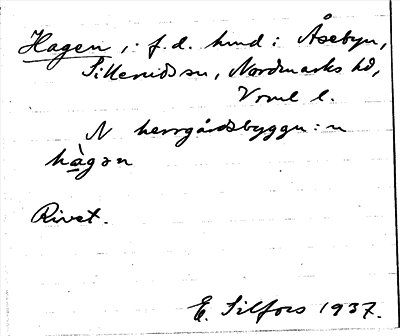 Hagen, : f.d. hmd : Åsebyn,
Sillerudssn, Nordmarks hd,
Vrml l.
N herrgårdsbyggn : n
hàgən
Rivet.
E. Silfors 1937.